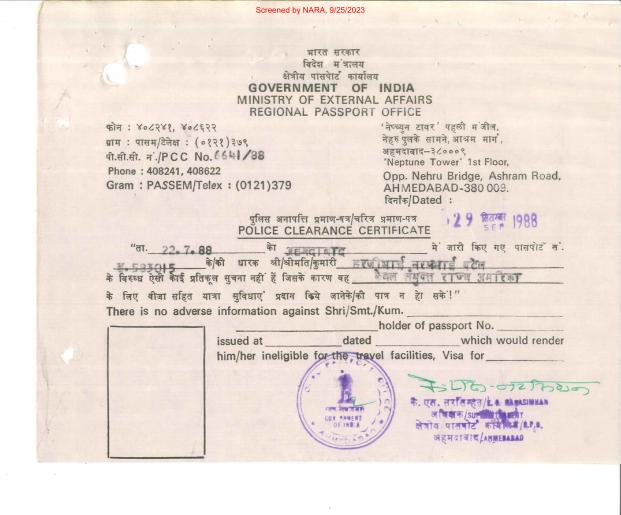 Screened by NARA, 9/25/2023
भारत सरकार
विदेश मंत्रालय
क्षेत्रीय पासपोर्ट कार्यालय
GOVERNMENT OF INDIA
MINISTRY OF EXTERNAL AFFAIRS
REGIONAL PASSPORT OFFICE
फोन : ४०८२४१, ४०८६२२
ग्राम : पासम/टेलेक्ष : (०१२१)३७९
पी.सी.सी. नं./PCC No. 6641/88
Phone : 408241, 408622
Gram : PASSEM/Telex : (0121)379
'नेप्च्युन टावर' पहली मंजील,
नेहरु पुलके सामने, आश्रम मार्ग,
अहमदाबाद-३८०००९
'Neptune Tower' 1st Floor,
Opp. Nehru Bridge, Ashram Road,
AHMEDABAD-380 009.
दिनाँक/Dated :
29 सितम्बर 1988
SEP
पुलिस अनापत्ति प्रमाण-पत्र/चरित्र प्रमाण-पत्र
POLICE CLEARANCE CERTIFICATE
"ता. 22.7.88 को अहमदाबाद में जारी किए गए पासपोर्ट सं.
593015 के/की धारक श्री/श्रीमति/कुमारी पटेल
के विरुध्ध ऐसी कोई प्रतिकूल सुचना नहीं हैं जिसके कारण वह केवल संयुक्त राज्य अमरिका
के लिए वीजा सहित यात्रा सुविधाएं प्रदान किये जानेके/की पात्र न हो सके!"
There is no adverse information against Shri/Smt./Kum.
holder of passport No.
issued at dated which would render
him/her ineligible for the travel facilities, Visa for
PASSPORT OFFICE
GOVERNMENT
OF INDIA
AHMEDABAD
के. एस. नरसिम्हन/K.S. NARASIMHAN
अधिक्षक/SUPERINTENDENT
क्षेत्रीय पासपोर्ट कार्यालय/R.P.O.
अहमदाबाद/AHMEDABAD